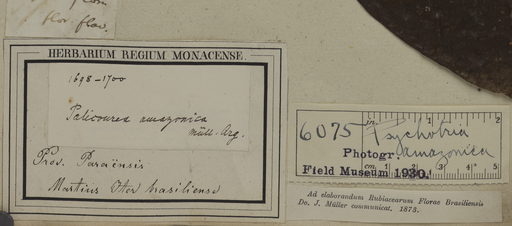 flor. flav.
HERBARIUM REGIUM MONACENSE.
1698-1700
Palicourea amazonica
Müll. Arg.
Prov. Paraënsis
Martius Iter brasiliense
in. 1 2
6075 Psychotria
amazonica
Photogr.
cm. 1 2 3 4 5
Field Museum 1930.
Ad elaborandum Rubiacearum Florae Brasiliensis
Do. J. Müller communicat. 1873.